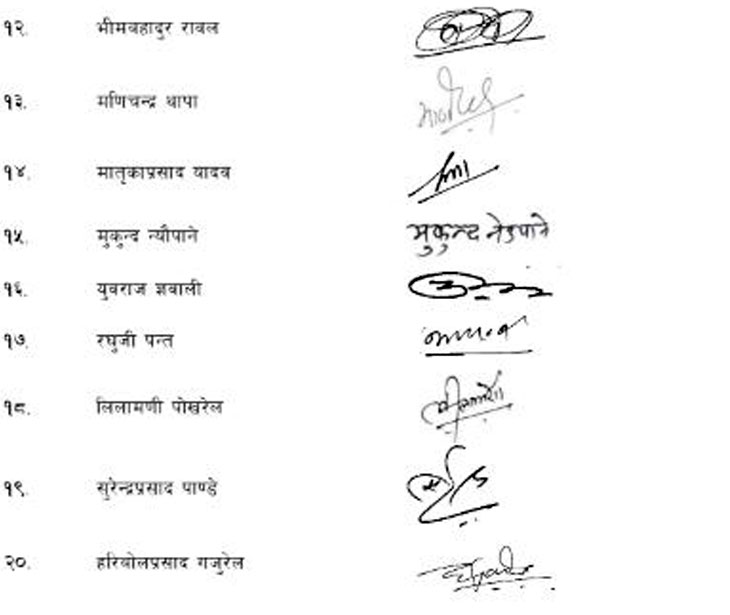 १२. भीमबहादुर रावल
१३. मणिचन्द्र थापा
१४. मातृकाप्रसाद यादव
१५. मुकुन्द न्यौपाने मुकुन्द नेउपाने
१६. युवराज ज्ञवाली
१७. रघुजी पन्त
१८. लिलामणी पोखरेल
१९. सुरेन्द्रप्रसाद पाण्डे
२०. हरिबोलप्रसाद गजुरेल